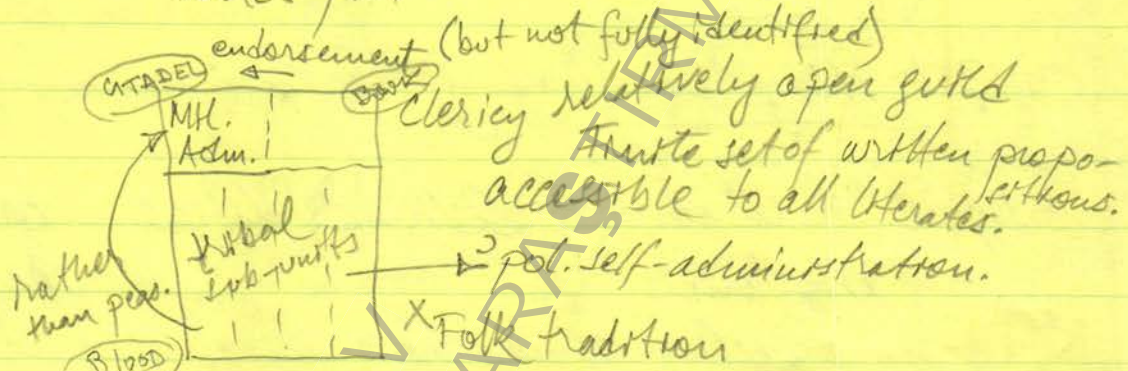 endorsement (but not fully identified)
CITADEL
Book
Clericy relatively open guild
MIL.
Adm.
Finite set of written propo-
sitions.
accessible to all literates.
tribal
sub-units
pol. self-administration.
rather
than peas.
x Folk tradition
Blood